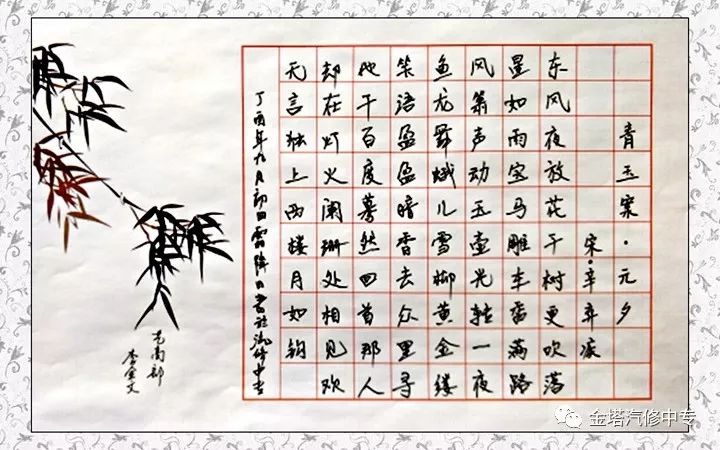 青玉案·元夕
宋·辛弃疾
东风夜放花千树更吹落
星如雨宝马雕车香满路
风箫声动玉壶光转一夜
鱼龙舞蛾儿雪柳黄金缕
笑语盈盈暗香去众里寻
他千百度蓦然回首那人
却在灯火阑珊处相见欢
无言独上西楼月如钩
丁酉年九月初四霜降日书于汽修中专
金塔汽修中专